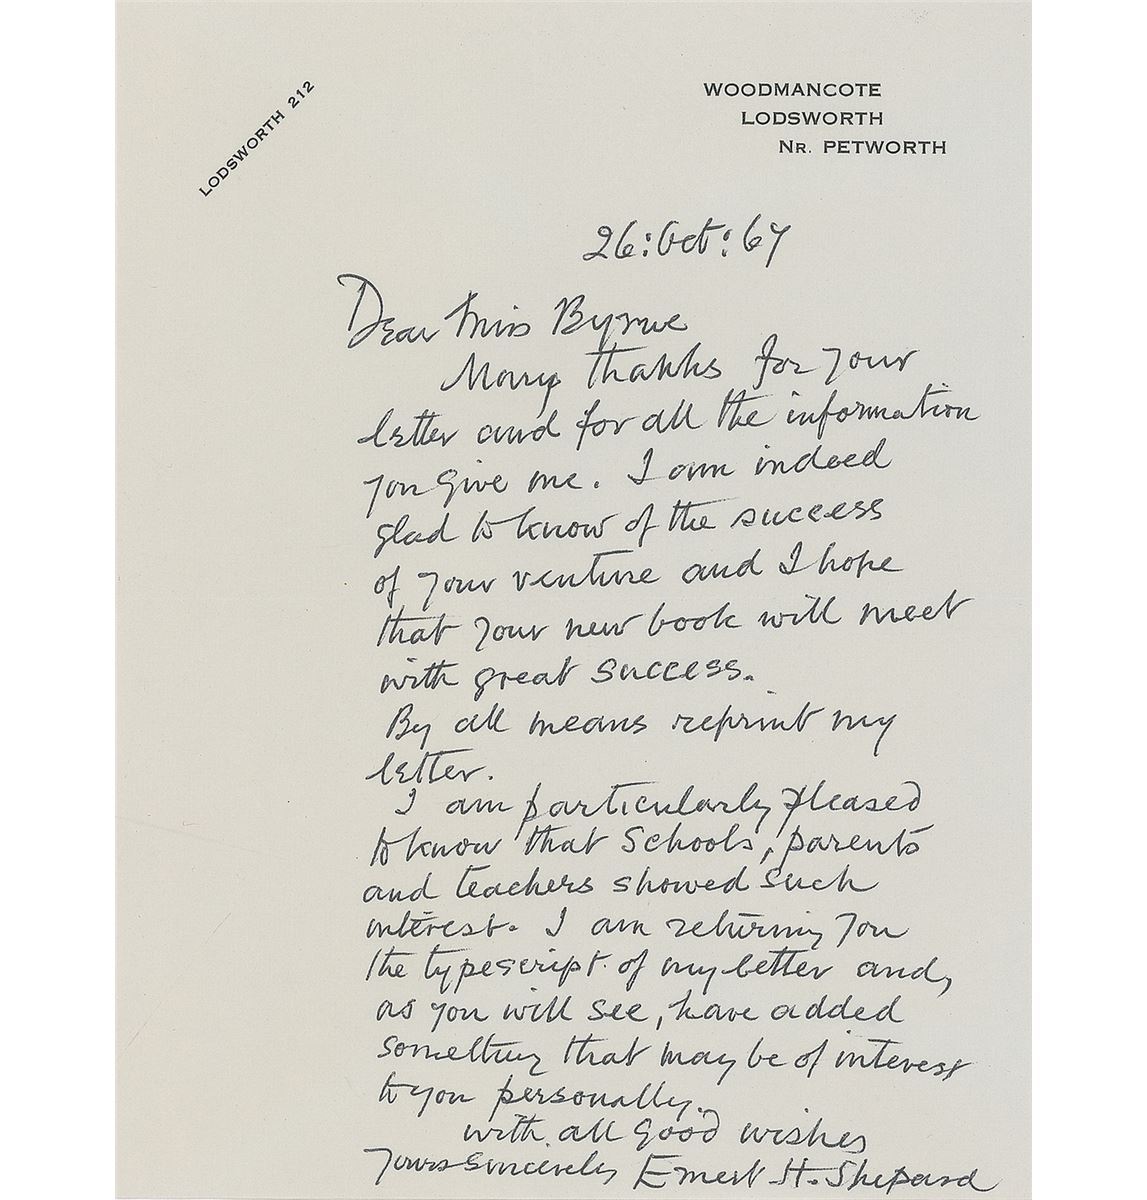 LODSWORTH 212
WOODMANCOTE
LODSWORTH
NR. PETWORTH
26: Oct: 67
Dear Miss Byrne
Many thanks for your
letter and for all the information
you give me. I am indeed
glad to know of the success
of your venture and I hope
that your new book will meet
with great success.
By all means reprint my
letter.
I am particularly pleased
to know that Schools, parents
and teachers showed such
interest. I am returning you
the typescript of my letter and,
as you will see, have added
something that may be of interest
to you personally.
with all good wishes
Yours sincerely Ernest H. Shepard